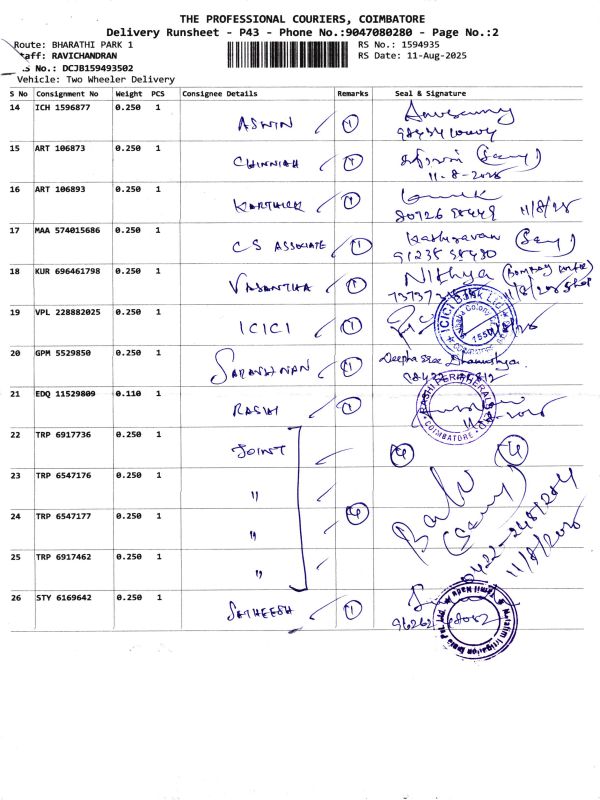 THE PROFESSIONAL COURIERS, COIMBATORE
Delivery Runsheet - P43 - Phone No.:9047080280 - Page No.:2
Route: BHARATHI PARK 1 RS No.: 1594935
Staff: RAVICHANDRAN RS Date: 11-Aug-2025
RS No.: DCJB159493502
Vehicle: Two Wheeler Delivery
S No Consignment No Weight PCS Consignee Details Remarks Seal & Signature
14 ICH 1596877 0.250 1 ASWIN 1
15 ART 106873 0.250 1 CHINNIAH 1 (Samy)
11-8-2025
16 ART 106893 0.250 1 KARTHICK 1
11/8/25
17 MAA 574015686 0.250 1 CS ASSOCIATE 1 Kathiravan
18 KUR 696461798 0.250 1 VASANTHA 1 Nithya
19 VPL 228882025 0.250 1 ICICI 1 ICICI BANK LTD
20 GPM 5529850 0.250 1 SARAVANAN 1 Deepha
21 EDQ 11529809 0.110 1 RASHI 1 RASHI PERIPHERALS
COIMBATORE
22 TRP 6917736 0.250 1 JOINT 4 4
23 TRP 6547176 0.250 1 "
24 TRP 6547177 0.250 1 " 4
25 TRP 6917462 0.250 1 " 11/8/2025
26 STY 6169642 0.250 1 SATHEESH 1